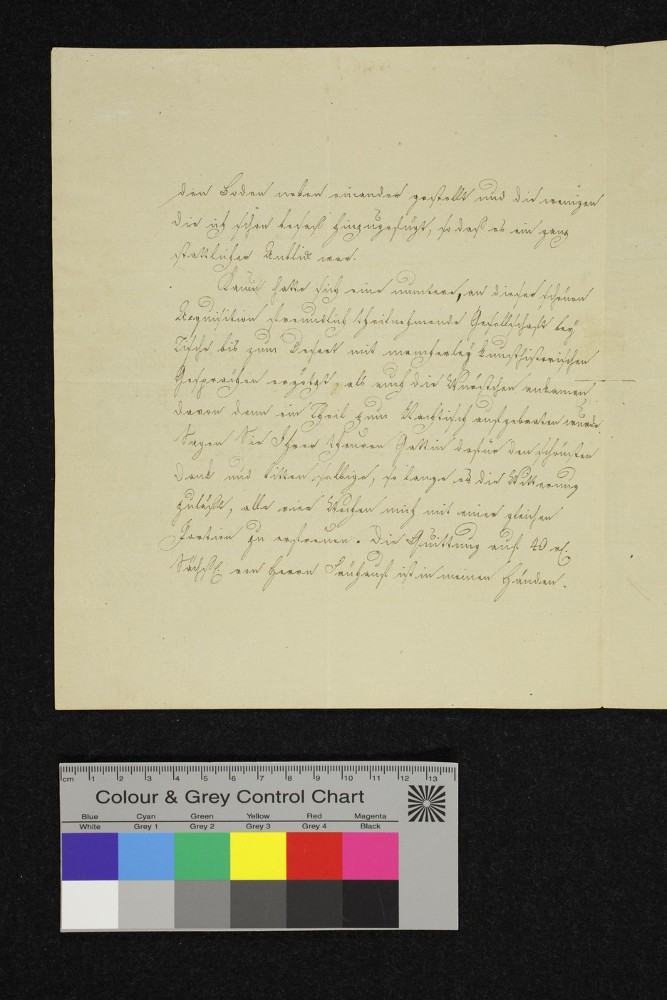 den Boden neben einander gestellt und die wenigen
die ich schon besaß hinzugefügt, so daß es ein ganz
stattlicher Anblick war.
Kaum hatte sich eine muntere, an dieser schönen
Acquisition freundlich theilnehmende Gesellschaft bey
Tische bis zum Desert mit mancherley kunsthistorischen
Gesprächen ergötzt, als auch die Würstchen ankamen
davon denn ein Theil zum Nachtisch aufgebraten wurde.
Sagen Sie Ihrer theuren Gattin dafür den schönsten
Dank und bitten selbige, so lange es die Witterung
zuläßt, alle vier Wochen mich mit einer gleichen
Portion zu erfreuen. Die Quittung auf 40 rh.
Sächs. von Herrn Frühauf ist in meinen Händen.
cm 1 2 3 4 5 6 7 8 9 10 11 12 13
Colour & Grey Control Chart
Blue Cyan Green Yellow Red Magenta
White Grey 1 Grey 2 Grey 3 Grey 4 Black